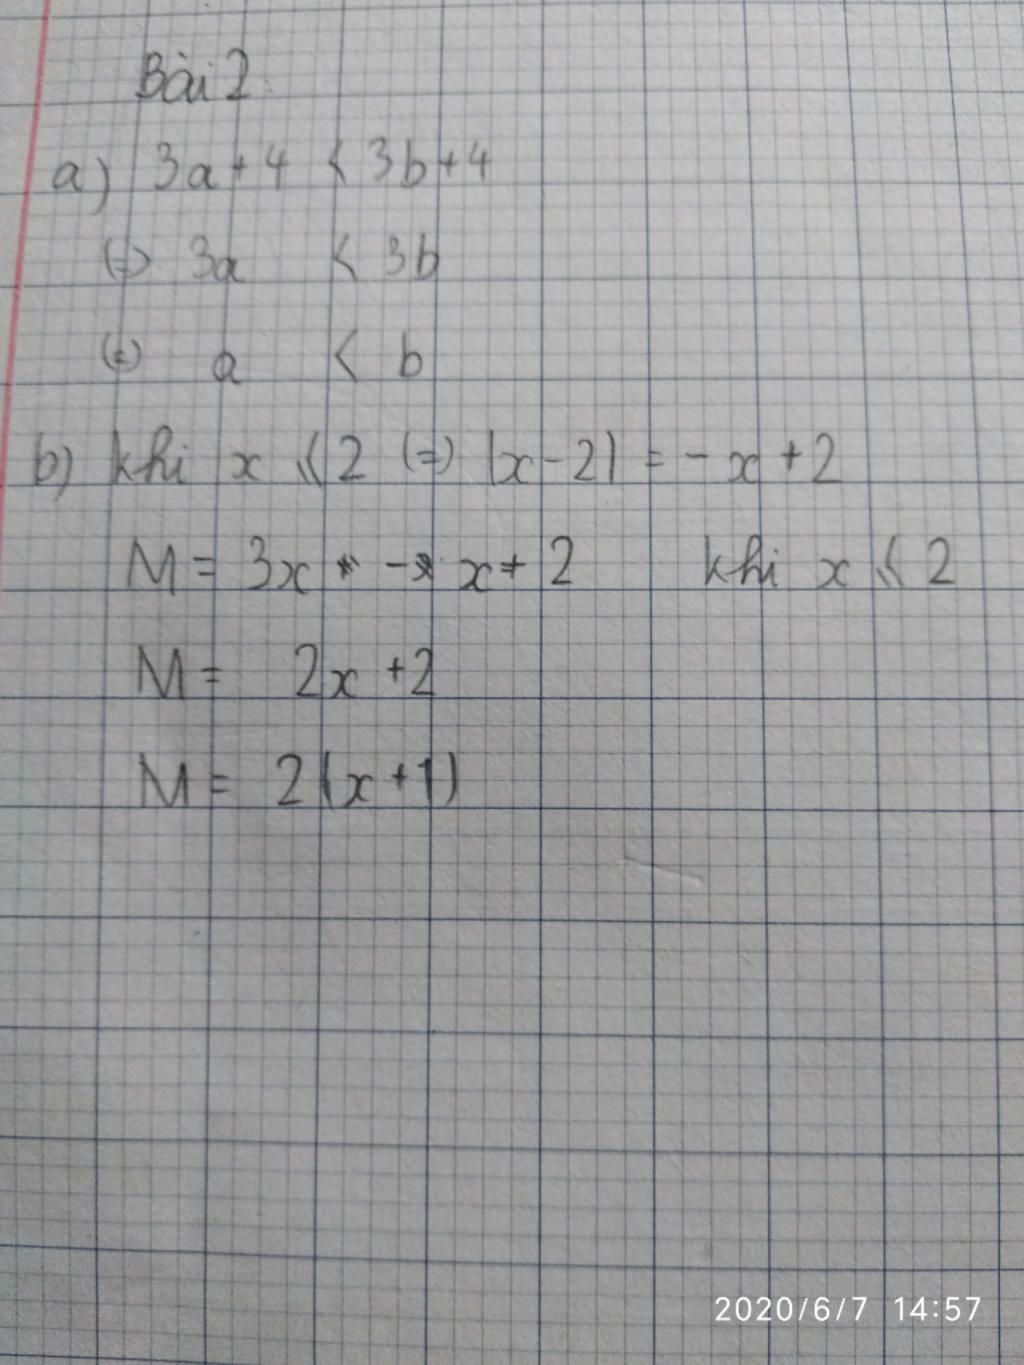 Bài 2
a) 3a + 4 < 3b + 4
(=) 3a < 3b
(=) a < b
b) khi x ≤ 2 (=) |x - 2| = - x + 2
M = 3x - x + 2 khi x ≤ 2
M = 2x + 2
M = 2(x + 1)
2020/6/7 14:57